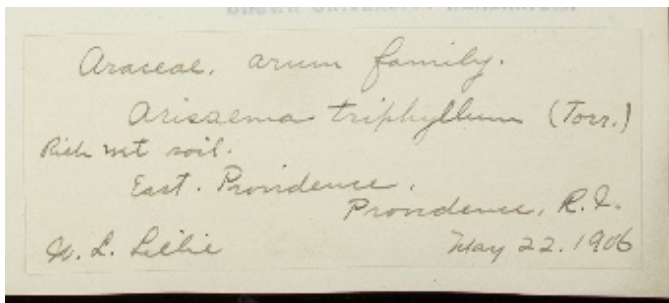 Araceae. arum family.
Arissema triphyllum (Torr.)
Rich wet soil.
East. Providence.
Providence, R.I.
L. Lillie
May 22. 1906